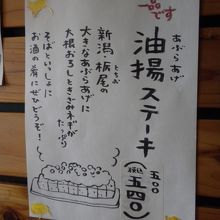 一品です
あぶらあげ
油揚ステーキ
五〇〇
(税込 五四〇)
とちお
新潟 栃尾の
大きなあぶらあげに
大根おろしときざみネギが
たっぷり
そばといっしょに
お酒の肴にぜひどうぞ!